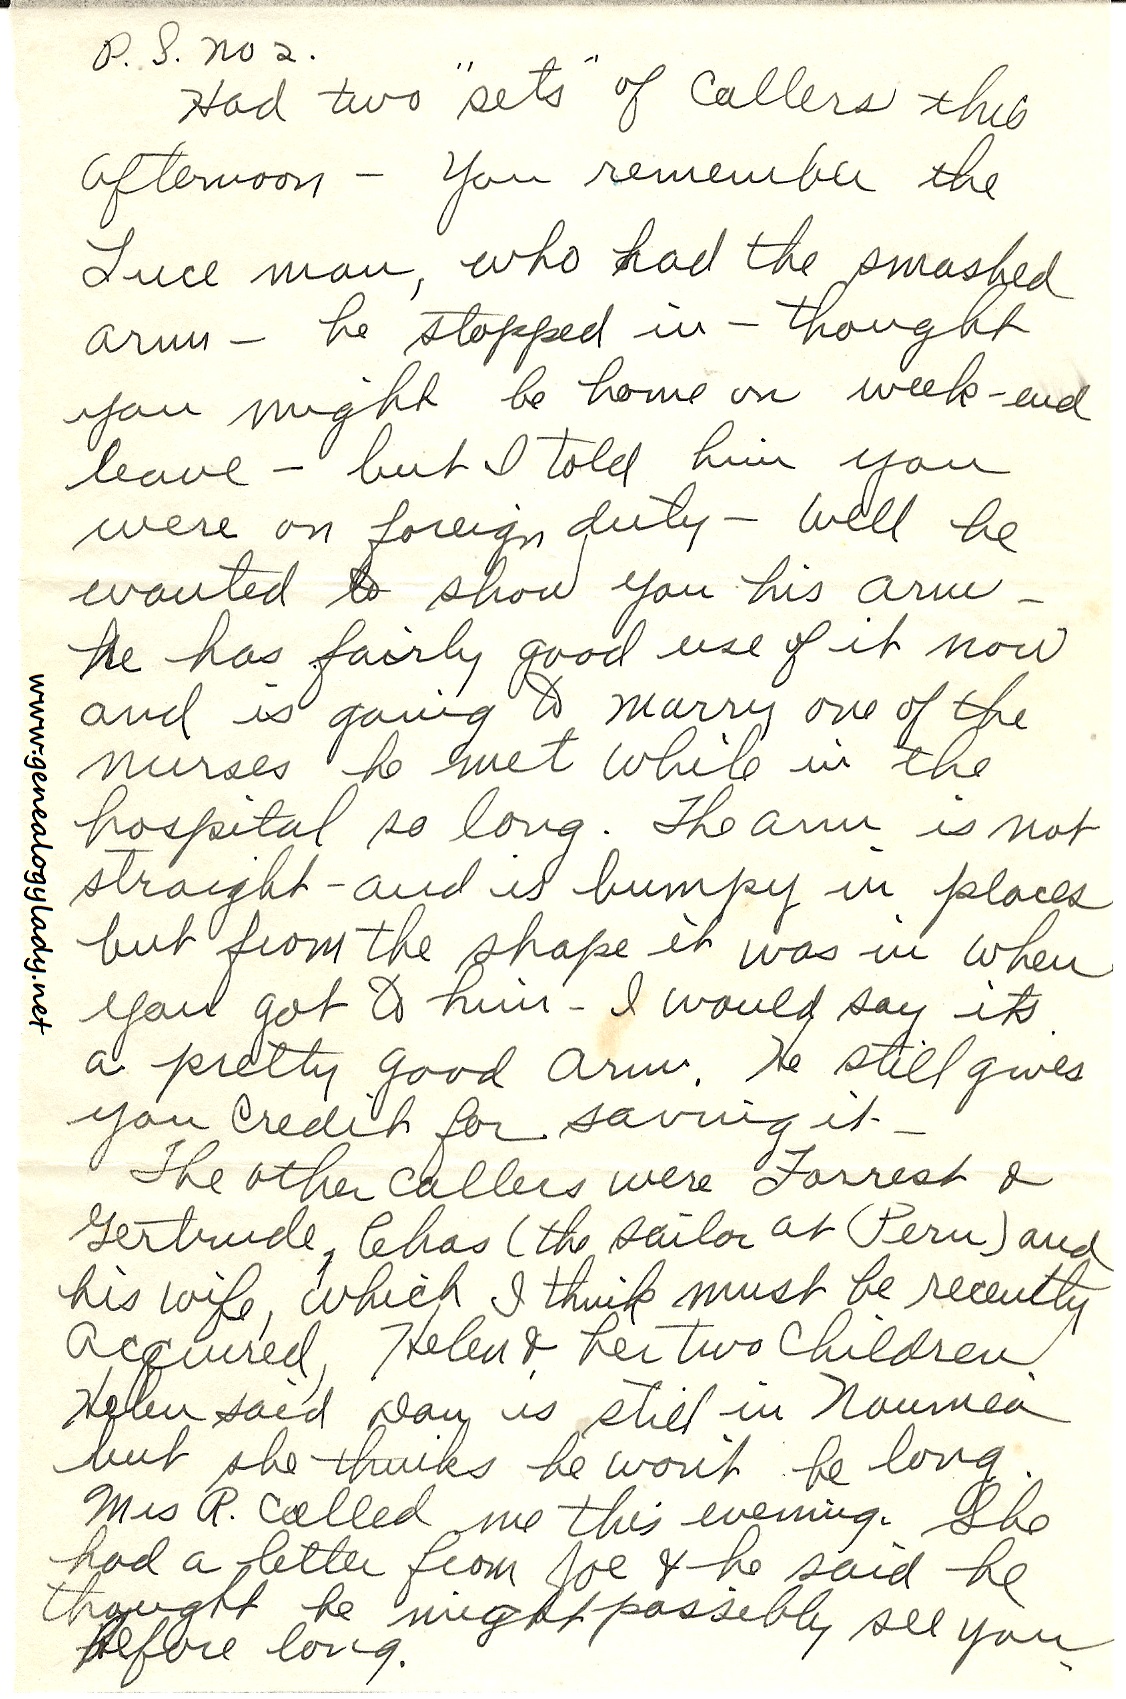 P. S. No 2.
Had two "sets" of callers this
afternoon – You remember the
Luce man, who had the smashed
arm – he stopped in – thought
you might be home on week-end
leave – but I told him you
were on foreign duty – Well he
wanted to show you his arm –
He has fairly good use of it now
and is going to marry one of the
nurses he met while in the
hospital so long. The arm is not
straight – and is bumpy in places
but from the shape it was in when
you got to him – I would say its
a pretty good arm. He still gives
you credit for saving it –
The other callers were Forrest &
Gertrude, Chas (the sailor at Peru) and
his wife, which I think must be recently
acquired, Helen & her two children
Helen said Dan is still in Noumea
but she thinks he won't be long.
Mrs R. called me this evening. She
had a letter from Joe & he said he
thought he might possibly see you
before long.
www.genealogylady.net